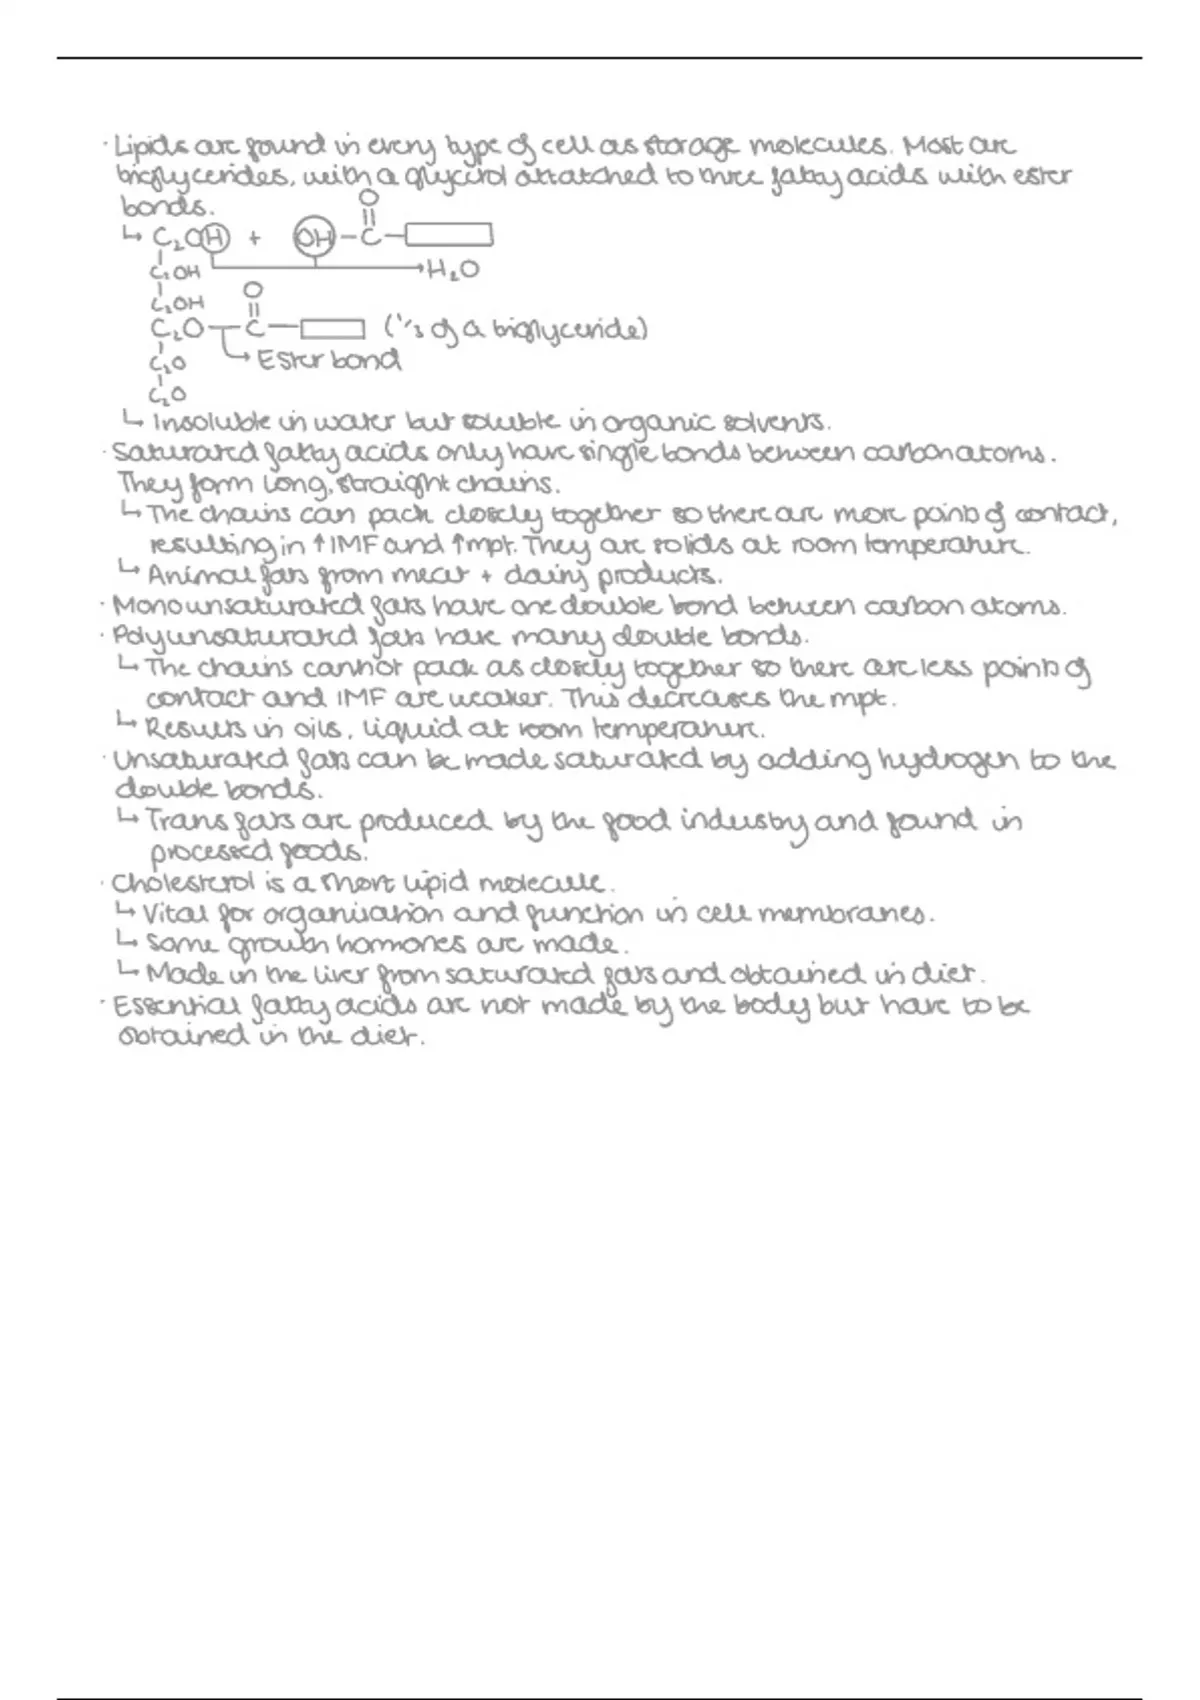 · Lipids are found in every type of cell as storage molecules. Most are
triglycerides, with a glycerol attatched to three fatty acids with ester
bonds.
O
||
↳ C₂OH + OH – C –
C₂OH → H₂O
C₂OH O
||
C₂O – C – (⅓ of a triglyceride)
C₂O ↳ Ester bond
C₂O
↳ Insoluble in water but soluble in organic solvents.
· Saturated fatty acids only have single bonds between carbon atoms.
They form long, straight chains.
↳ The chains can pack closely together so there are more points of contact,
resulting in ↑ IMF and ↑ mpt. They are solids at room temperature.
↳ Animal fats from meat + dairy products.
· Monounsaturated fats have one double bond between carbon atoms.
· Polyunsaturated fats have many double bonds.
↳ The chains cannot pack as closely together so there are less points of
contact and IMF are weaker. This decreases the mpt.
↳ Results in oils, liquid at room temperature.
· Unsaturated fats can be made saturated by adding hydrogen to the
double bonds.
↳ Trans fats are produced by the food industry and found in
processed foods.
· Cholesterol is a short lipid molecule.
↳ Vital for organisation and function in cell membranes.
↳ Some growth hormones are made.
↳ Made in the liver from saturated fats and obtained in diet.
· Essential fatty acids are not made by the body but have to be
obtained in the diet.